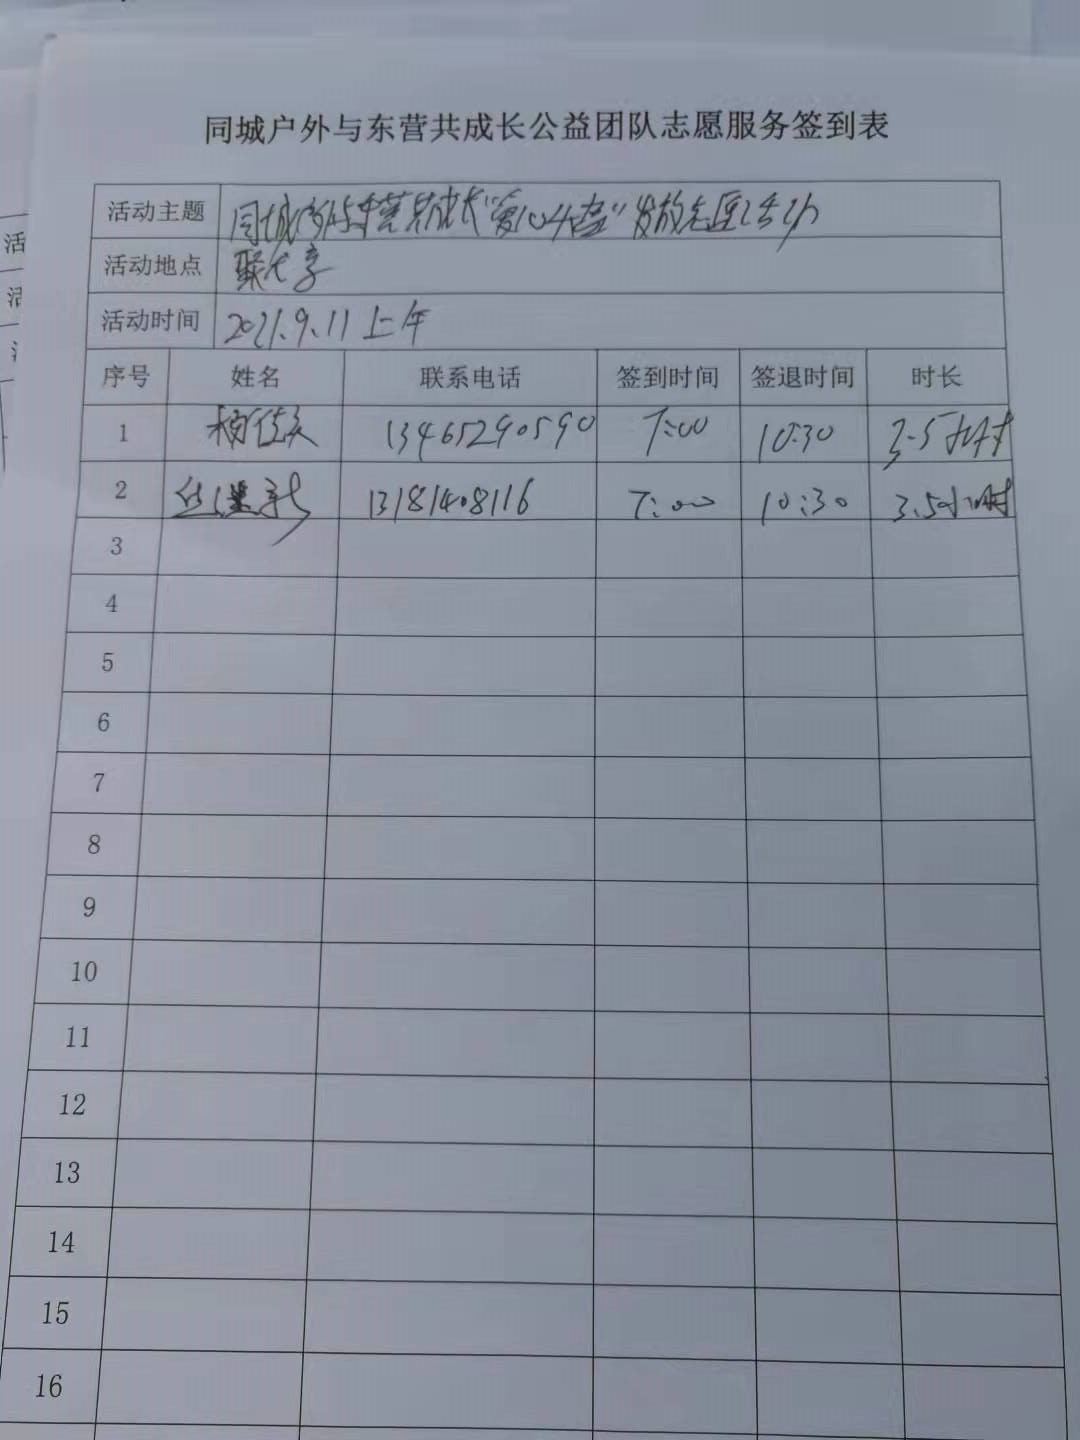 同城户外与东营共成长公益团队志愿服务签到表
活动主题 同城户外与东营共成长"爱心头盔"发放志愿活动
活动地点
活动时间 2021.9.11 上午
序号 姓名 联系电话 签到时间 签退时间 时长
1 13465290590 7:00 10:30 3.5小时
2 13181408116 7:00 10:30 3.5小时
3
4
5
6
7
8
9
10
11
12
13
14
15
16